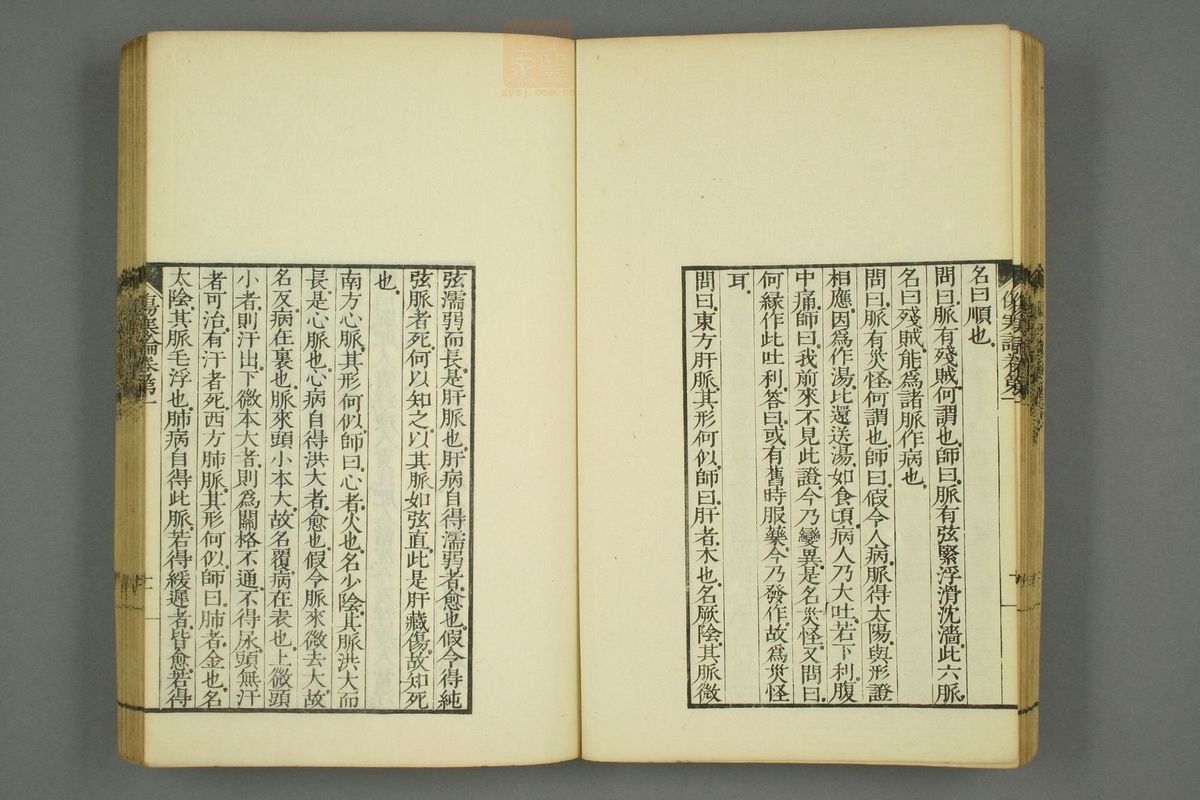 名曰順也
問曰脈有殘賊何謂也師曰脈有弦緊浮滑沈濇此六脈
名曰殘賊能爲諸脈作病也
問曰脈有災怪何謂也師曰假令人病脈得太陽與形證
相應因爲作湯比還送湯如食頃病人乃大吐若下利腹
中痛師曰我前來不見此證今乃變異是名災怪又問曰
何緣作此吐利荅曰或有舊時服藥今乃發作故爲災怪
耳
問曰東方肝脈其形何似師曰肝者木也名厥陰其脈微
弦濡弱而長是肝脈也肝病自得濡弱者愈也假令得純
弦脈者死何以知之以其脈如弦直此是肝藏傷故知死
也
南方心脈其形何似師曰心者火也名少陰其脈洪大而
長是心脈也心病自得洪大者愈也假令脈來微去大故
名反病在裏也脈來頭小本大故名覆病在表也上微頭
小者則汗出下微本大者則爲關格不通不得尿頭無汗
者可治有汗者死西方肺脈其形何似師曰肺者金也名
太陰其脈毛浮也肺病自得此脈若得緩遲者皆愈若得
傷寒論卷第一